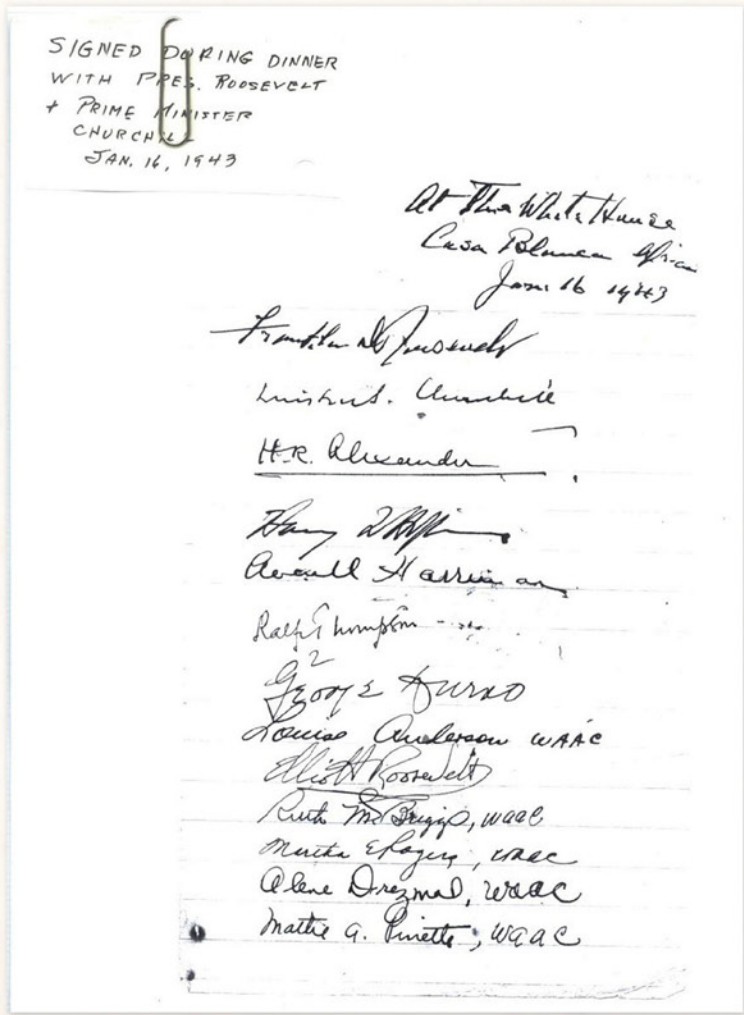 SIGNED DURING DINNER
WITH PRES. ROOSEVELT
+ PRIME MINISTER
CHURCHILL
JAN. 16, 1943
At The White House
Casa Blanca Africa
Jan. 16 1943
Franklin D Roosevelt
Winston S. Churchill
H.R. Alexander
Harry L Hopkins
Averell Harriman
Ralph Thompson
George Durno
Louise Anderson WAAC
Elliott Roosevelt
Ruth M. Briggs, WAAC
Martha E Rogers, WAAC
Alene Drezmal, WAAC
Mattie A. Pinette, WAAC